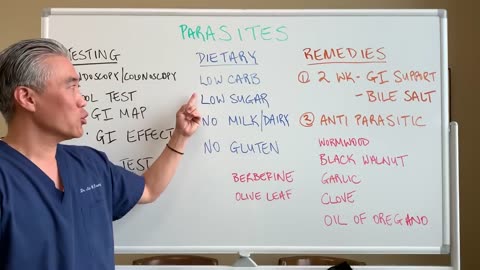 PARASITES
TESTING
NDOSCOPY/COLONOSCOPY
OL TEST
GI MAP
GI EFFECT
TEST
DIETARY
LOW CARB
LOW SUGAR
NO MILK/DAIRY
NO GLUTEN
REMEDIES
① 2 WK - GI SUPPORT
- BILE SALT
② ANTI PARASITIC
WORMWOOD
BLACK WALNUT
GARLIC
CLOVE
OIL OF OREGANO
BERBERINE
OLIVE LEAF